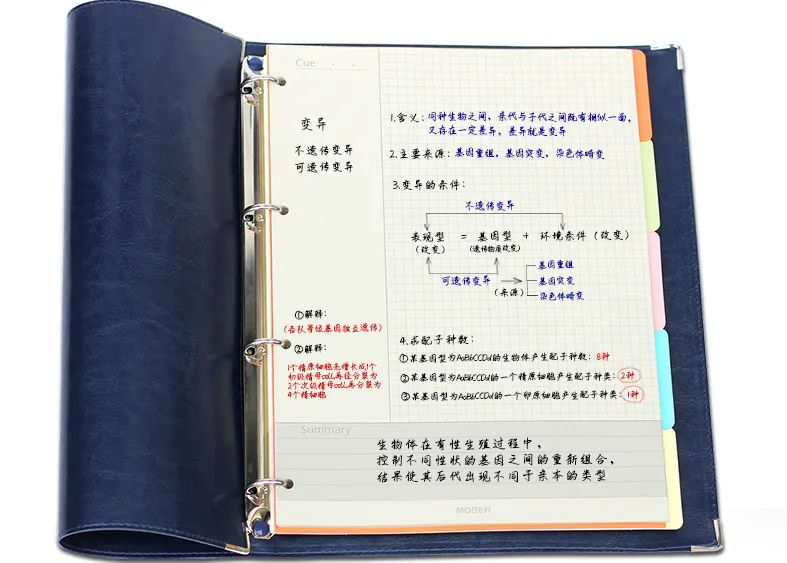 Cue
变异
不遗传变异
可遗传变异
①解释:
(各队等位基因独立遗传)
②解释:
1个精原细胞先增长成1个
初级精母cell再经分裂为
2个次级精母cell再分裂为
4个精细胞
1.含义: 同种生物之间, 亲代与子代之间既有相似一面,
又存在一定差异, 差异就是变异
2.主要来源: 基因重组, 基因突变, 染色体畸变
3.变异的条件:
不遗传变异
表现型 = 基因型 + 环境条件 (改变)
(改变) (遗传物质改变)
可遗传变异
(来源)
基因重组
基因突变
染色体畸变
4.求配子种数:
①某基因型为AaBbCCDd的生物体产生配子种数: 8种
②某基因型为AaBbCCDd的一个精原细胞产生配子种类: 2种
③某基因型为AaBbCCDd的一个卵原细胞产生配子种类: 1种
Summary
生物体在有性生殖过程中,
控制不同性状的基因之间的重新组合,
结果使其后代出现不同于亲本的类型
MOBEN